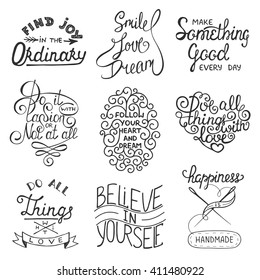 FIND JOY
IN THE
Ordinary
Smile
Love
Dream
MAKE
Something
Good
EVERY DAY
Do it
with
Passion
or
Not at all
FOLLOW
YOUR
HEART AND
DREAM
Do all
things with
Love
DO ALL
Things
WITH
LOVE
BELIEVE
IN
YOURSELF
happiness
is
HANDMADE
shutterstock.com · 411480922